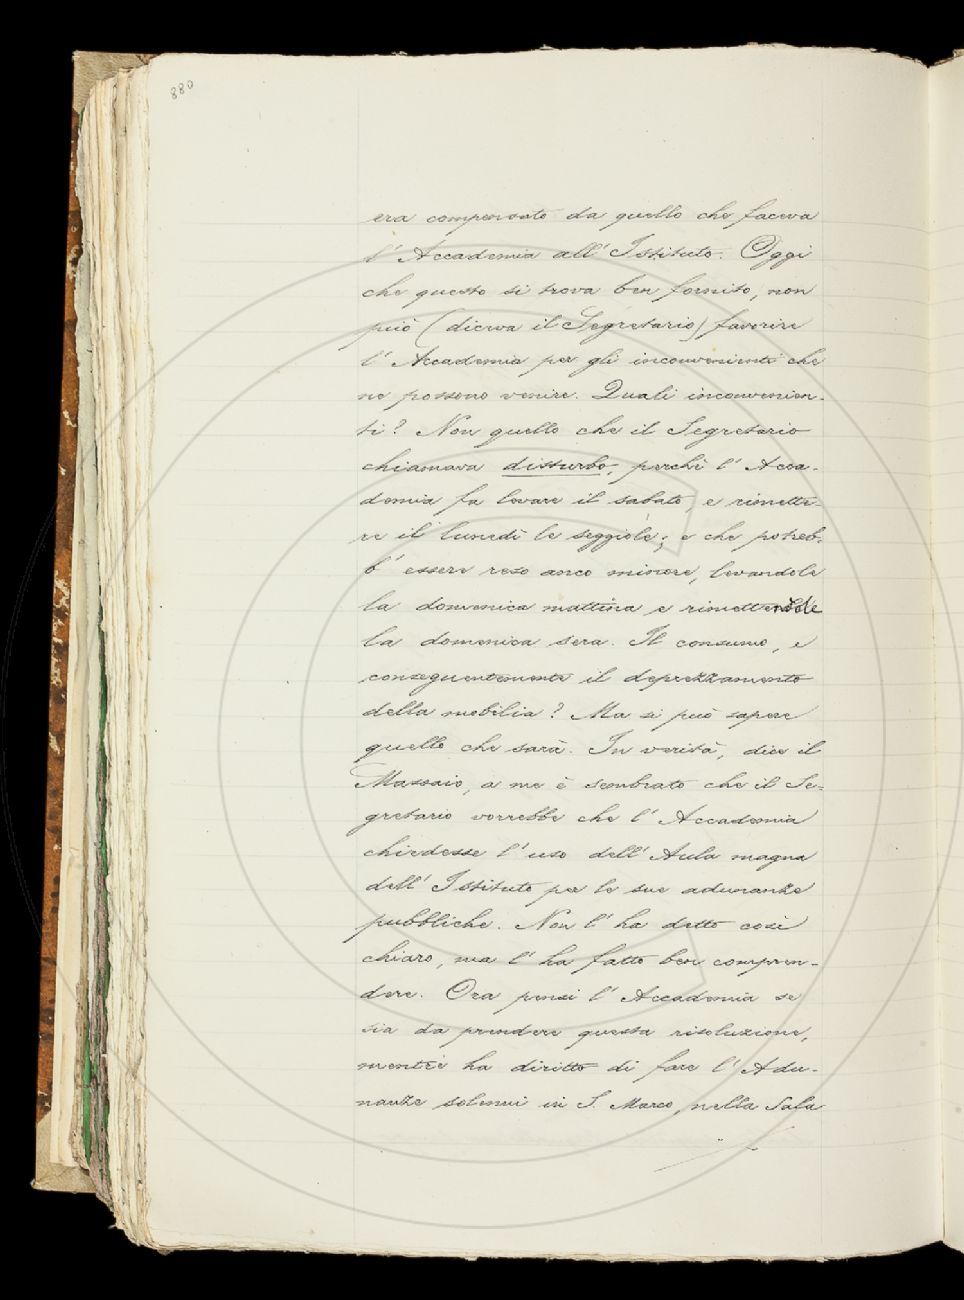 880
era compensato da quello che faceva
l' Accademia all' Istituto. Oggi
che questo si trova ben fornito, non
può (diceva il Segretario) favorire
l' Accademia per gli inconvenienti che
ne possono venire. Quali inconvenien-
ti? Non quello che il Segretario
chiamava disturbo, perchè l' Acca-
demia fa levare il sabato, e rimette-
re il lunedì le seggiole; e che potreb-
b' essere reso anco minore, levandole
la domenica mattina e rimettendole
la domenica sera. Il consumo, e
conseguentemente il deprezzamento
della mobilia? Ma si può sapere
quello che sarà. In verità, dice il
Massaio, a me è sembrato che il Se-
gretario vorrebbe che l' Accademia
chiedesse l' uso dell' Aula magna
dell' Istituto per le sue adunanze
pubbliche. Non l' ha detto così
chiaro, ma l' ha fatto ben compren-
dere. Ora pensi l' Accademia se
sia da prendere questa risoluzione,
mentre ha diritto di fare l' Adu-
nanze solenni in S. Marco, nella Sala